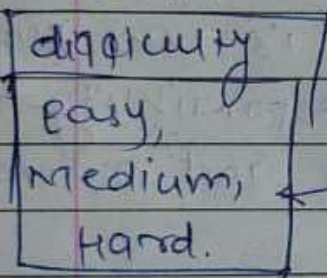 difficulty
easy,
Medium,
Hard.